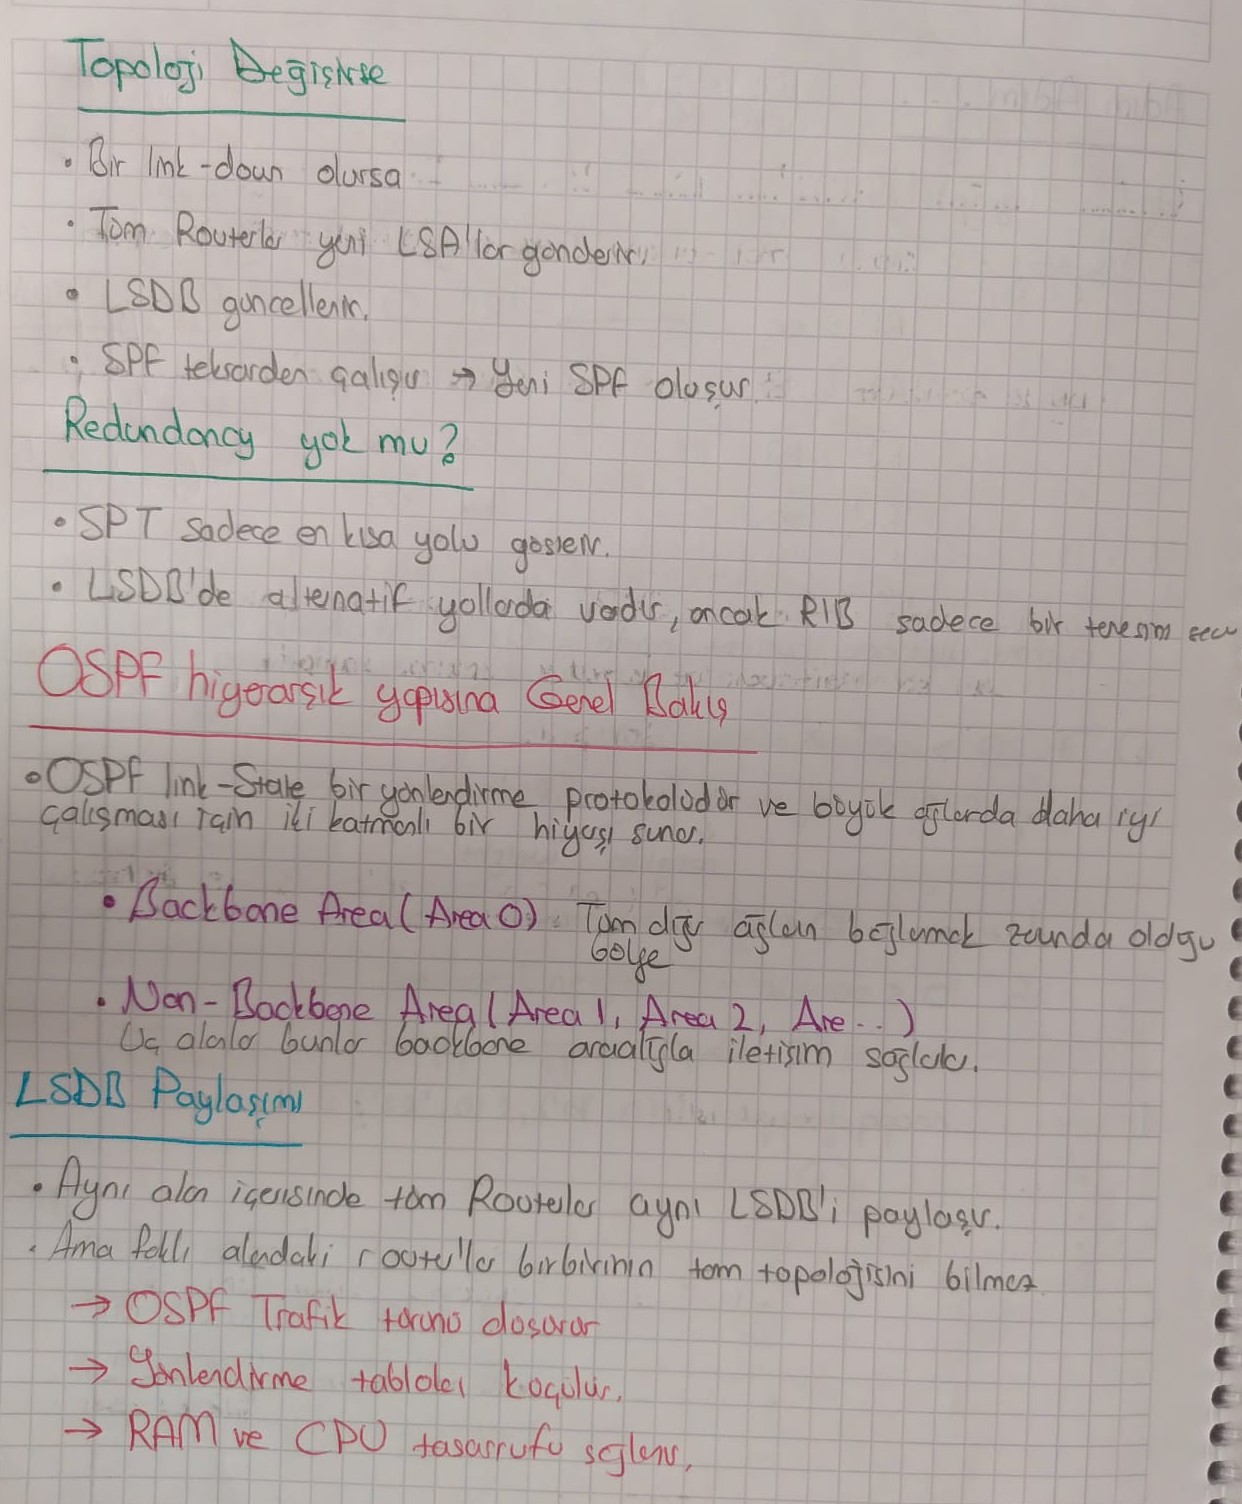 Topoloji Değişirse
• Bir link-down olursa
• Tüm Routerlar yeni LSA'lar gönderir.
• LSDB güncellenir.
• SPF tekrardan çalışır → Yeni SPF oluşur.
Redundancy yok mu?
• SPT sadece en kısa yolu gösterir.
• LSDB'de alternatif yollarda vardır, ancak RIB sadece bir
OSPF hiyerarşik yapısına Genel Bakış
• OSPF link-State bir yönlendirme protokolüdür ve büyük ağlarda daha iyi
çalışması için iki katmanlı bir sunar.
• Backbone Area (Area 0) Tüm diğer ağların bağlamak zorunda olduğu
bölge
• Non-Backbone Area (Area 1, Area 2, Are...)
Uç alanlar bunlar backbone aracılığıyla iletişim sağlar.
LSDB Paylaşımı
• Aynı alan içerisinde tüm Routerlar aynı LSDB'i paylaşır.
• Ama farklı alandaki router'lar birbirinin tam topolojisini bilmez
→ OSPF Trafik
→ Yönlendirme tabloları küçülür.
→ RAM ve CPU tasarrufu sağlanır.